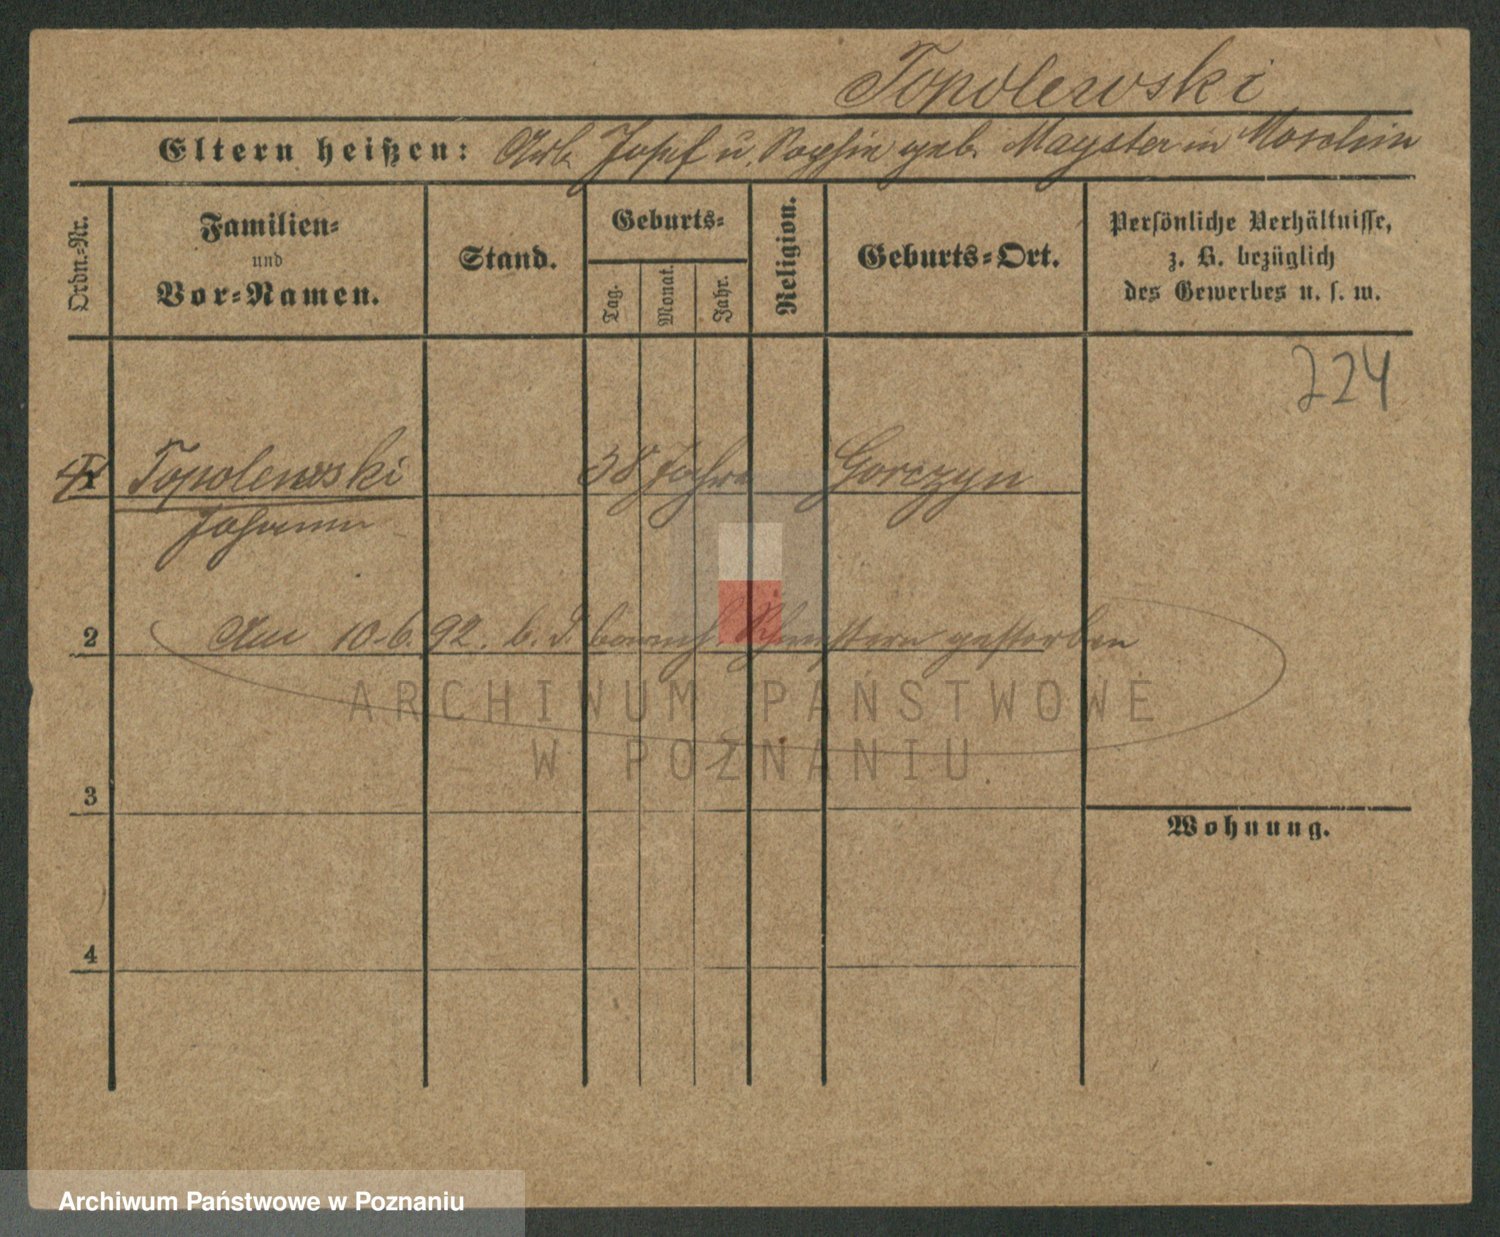 Topolewski
Eltern heißen: Arb. Josef u. Sophie geb. Mayster in Moschin
Ordn.-Nr.
Familien-
und
Vor-Namen.
Stand.
Geburts-
Tag.
Monat.
Jahr.
Religion.
Geburts-Ort.
Persönliche Verhältnisse,
z. B. bezüglich
des Gewerbes u. s. w.
224
1 Topolewski 38 Jahre Gorczyn
Johann
2 Am 10.6.92. b. d. barmh. Schwestern gestorben
ARCHIWUM PAŃSTWOWE
W POZNANIU
3
Wohnung.
4
Archiwum Państwowe w Poznaniu